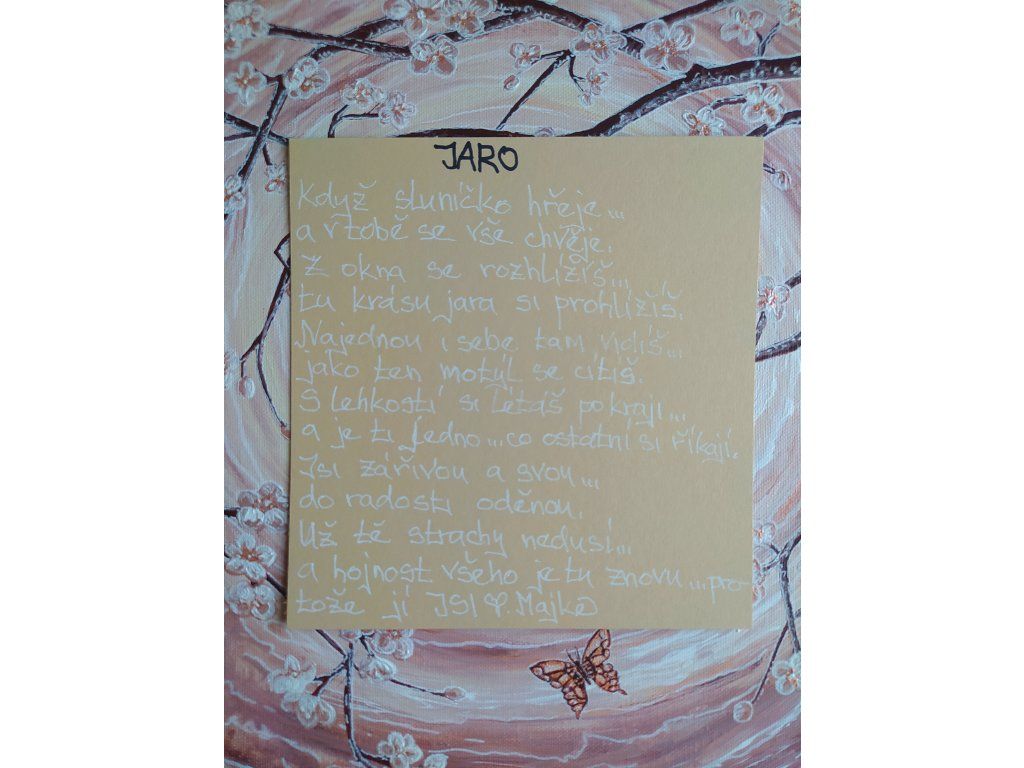 JARO
Když sluníčko hřeje...
a v tobě se vše chvěje.
Z okna se rozhlížíš...,
tu krásu jara si prohlížíš.
Najednou i sebe tam vidíš...
jako ten motýl se cítíš.
S lehkostí si lítáš po kraji...
a je ti jedno...co ostatní si říkají.
Jsi zářivou a svou...
do radosti oděnou.
Už tě strachy nedusí...
a hojnost všeho je tu znovu...pro-
tože jí JSI ♡. Majka